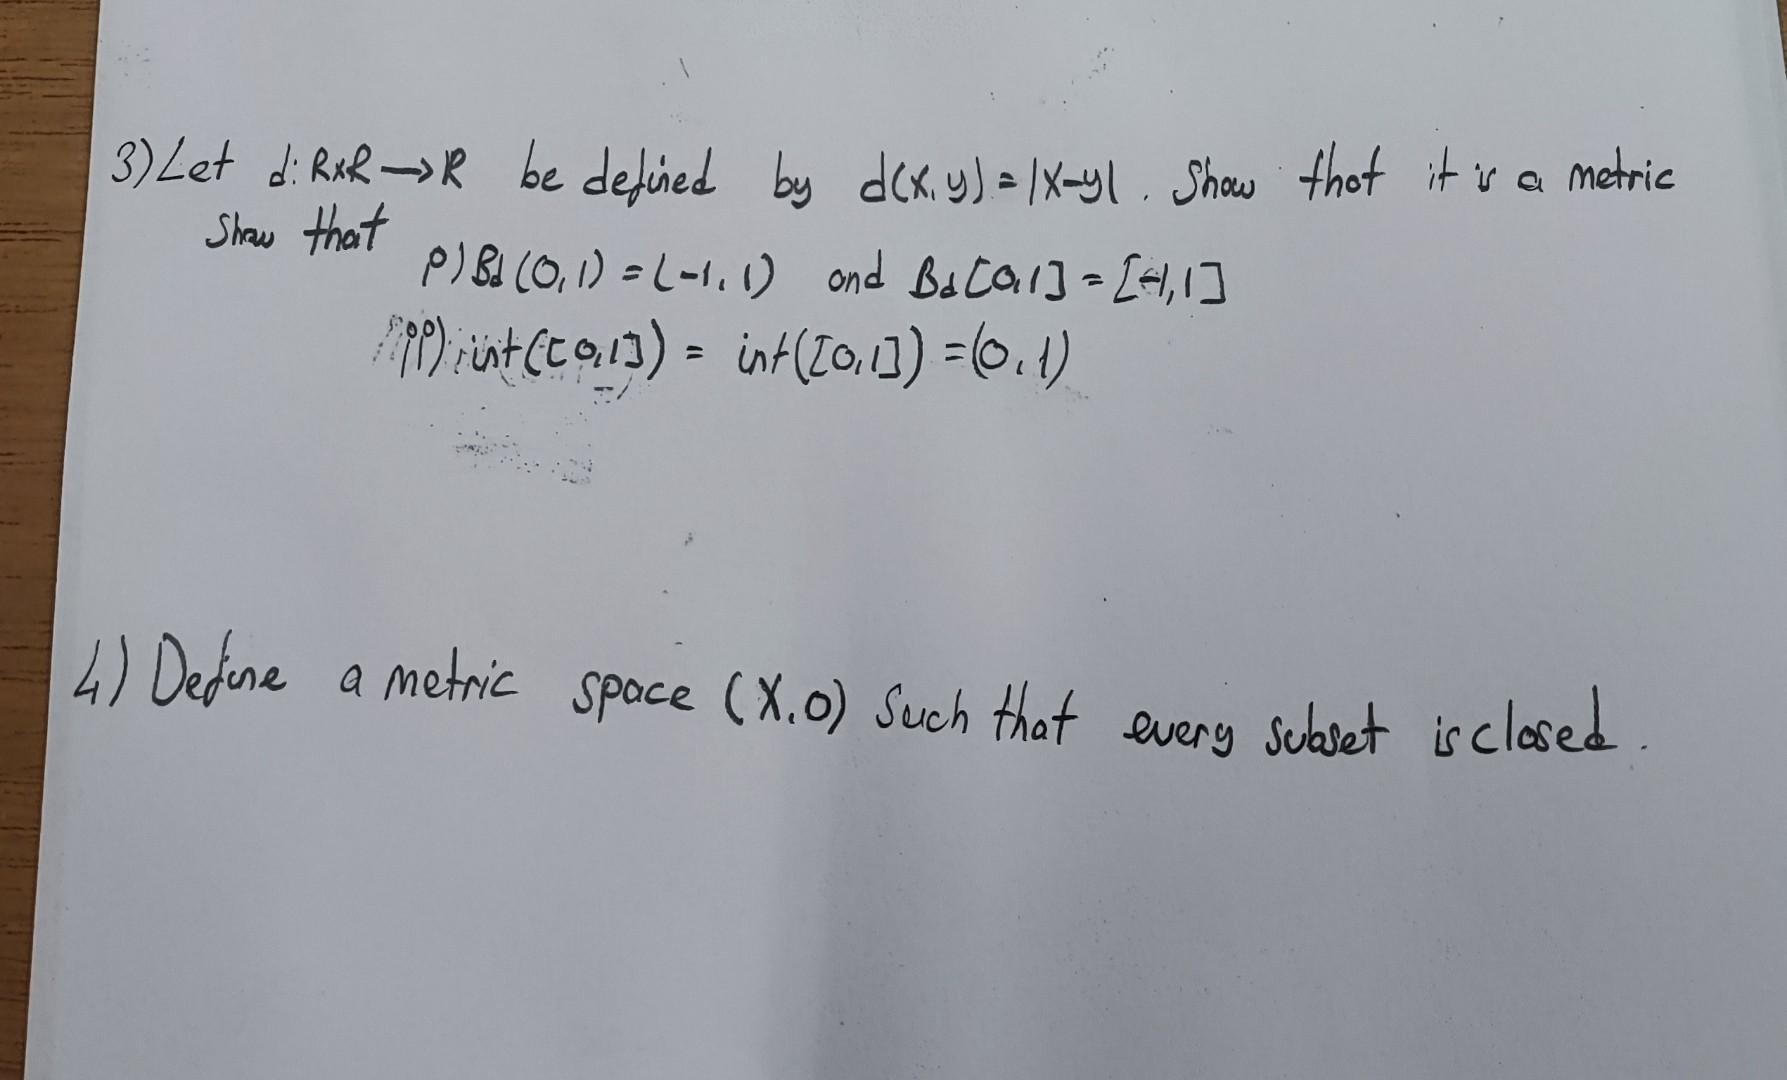 3) Let d: RxR → R be defined by d(x,y) = |x-y|. Show that it is a metric
Show that
i) Bd (0,1) = (-1,1) and Bd [0,1] = [-1,1]
ii) int([0,1]) = int([0,1]) = (0,1)
4) Define a metric space (X,0) Such that every subset is closed.